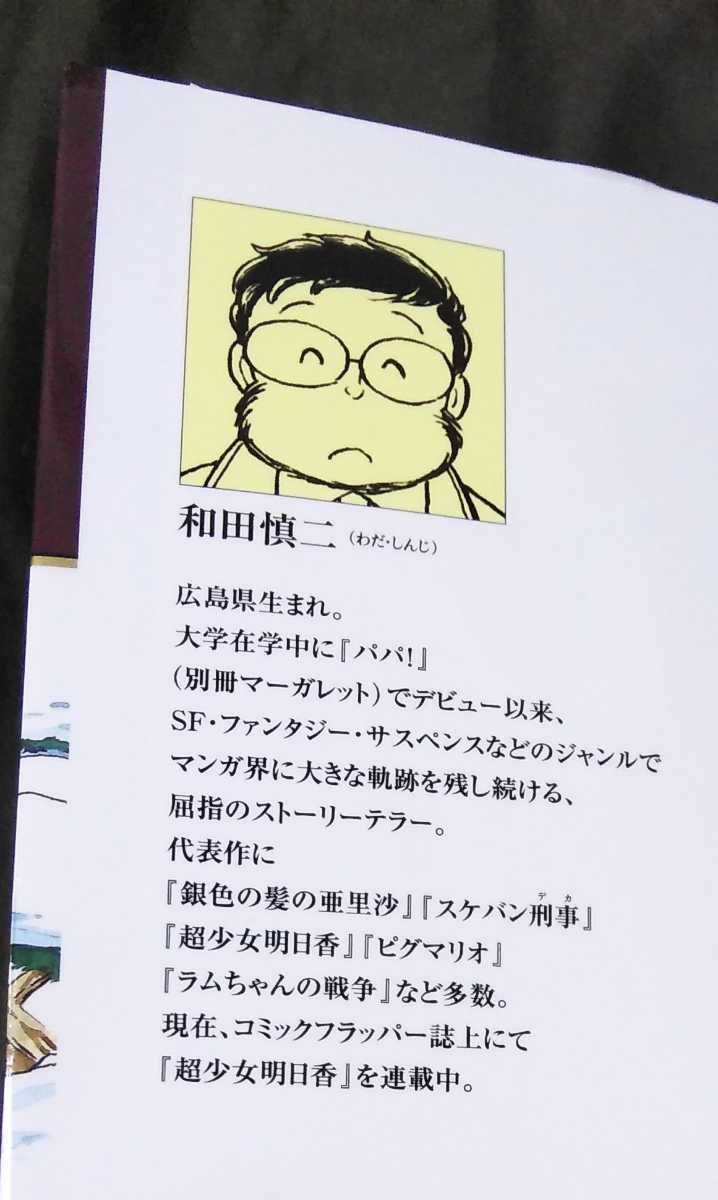 和田慎二（わだ・しんじ）
広島県生まれ。
大学在学中に『パパ！』
（別冊マーガレット）でデビュー以来、
SF・ファンタジー・サスペンスなどのジャンルで
マンガ界に大きな軌跡を残し続ける、
屈指のストーリーテラー。
代表作に
『銀色の髪の亜里沙』『スケバン刑事』
デカ
『超少女明日香』『ピグマリオ』
『ラムちゃんの戦争』など多数。
現在、コミックフラッパー誌上にて
『超少女明日香』を連載中。